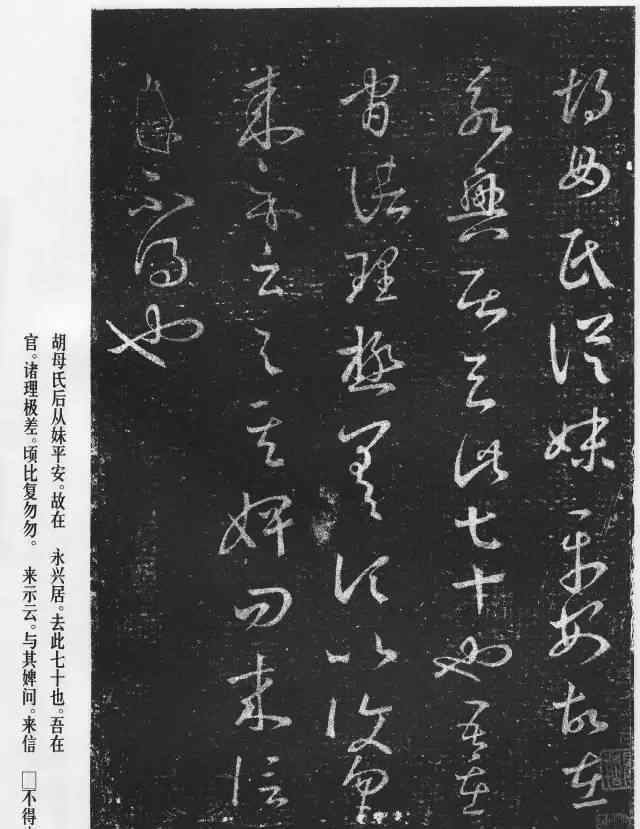 胡母氏從妹平安故在
永興居去此七十也吾在
官諸理極差頃比復勿
來示云与其婢問來信
不得也
胡母氏后从妹平安。故在　永兴居。去此七十也。吾在
官。诸理极差。顷比复勿勿。　来示云。与其婢问。来信　□不得